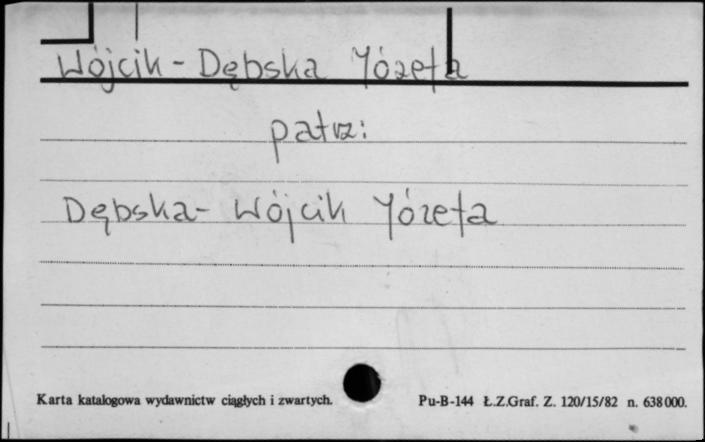 Wójcik - Dębska Józefa
patrz:
Dębska - Wójcik Józefa
Karta katalogowa wydawnictw ciągłych i zwartych.
Pu-B-144 Ł.Z.Graf. Z. 120/15/82 n. 638 000.